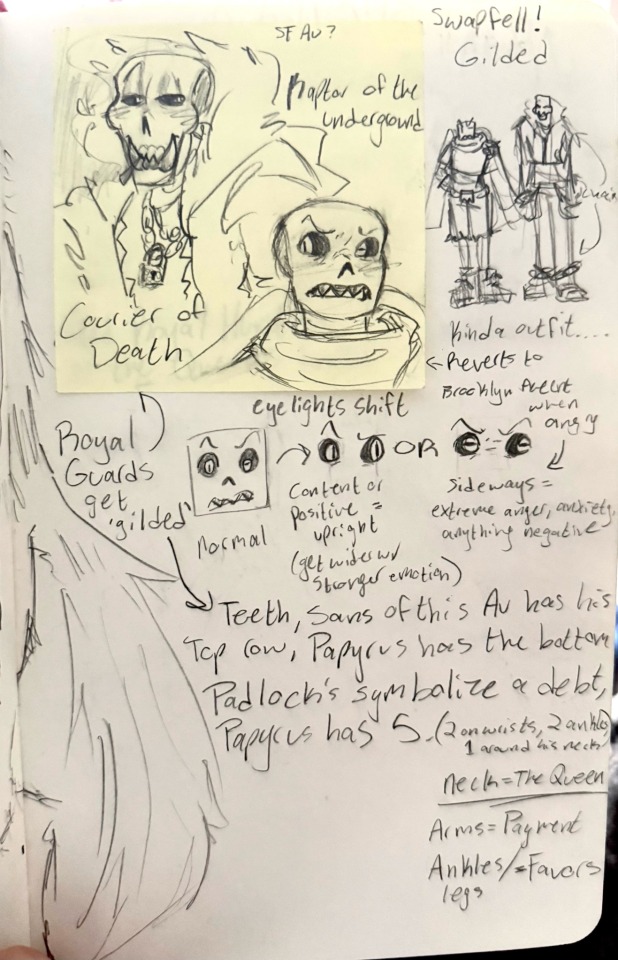 SF AU?
Swapfell!
Gilded
Raptor of the
underground
chain
Courier of
Death
Kinda outfit....
← Reverts to
Brooklyn Accent
when
angry
eyelights shift
Royal
Guards
get
'gilded'
normal
Content or
Positive =
upright
(get wider w/
stronger emotion)
OR
Sideways =
extreme anger, anxiety,
anything negative
Teeth, Sans of this AU has his
Top row, Papyrus has the bottom
Padlock's symbolize a debt,
Papyrus has 5. (2 on wrists, 2 ankles,
1 around his neck)
Neck = The Queen
Arms = Payment
Ankles/ = Favors
legs